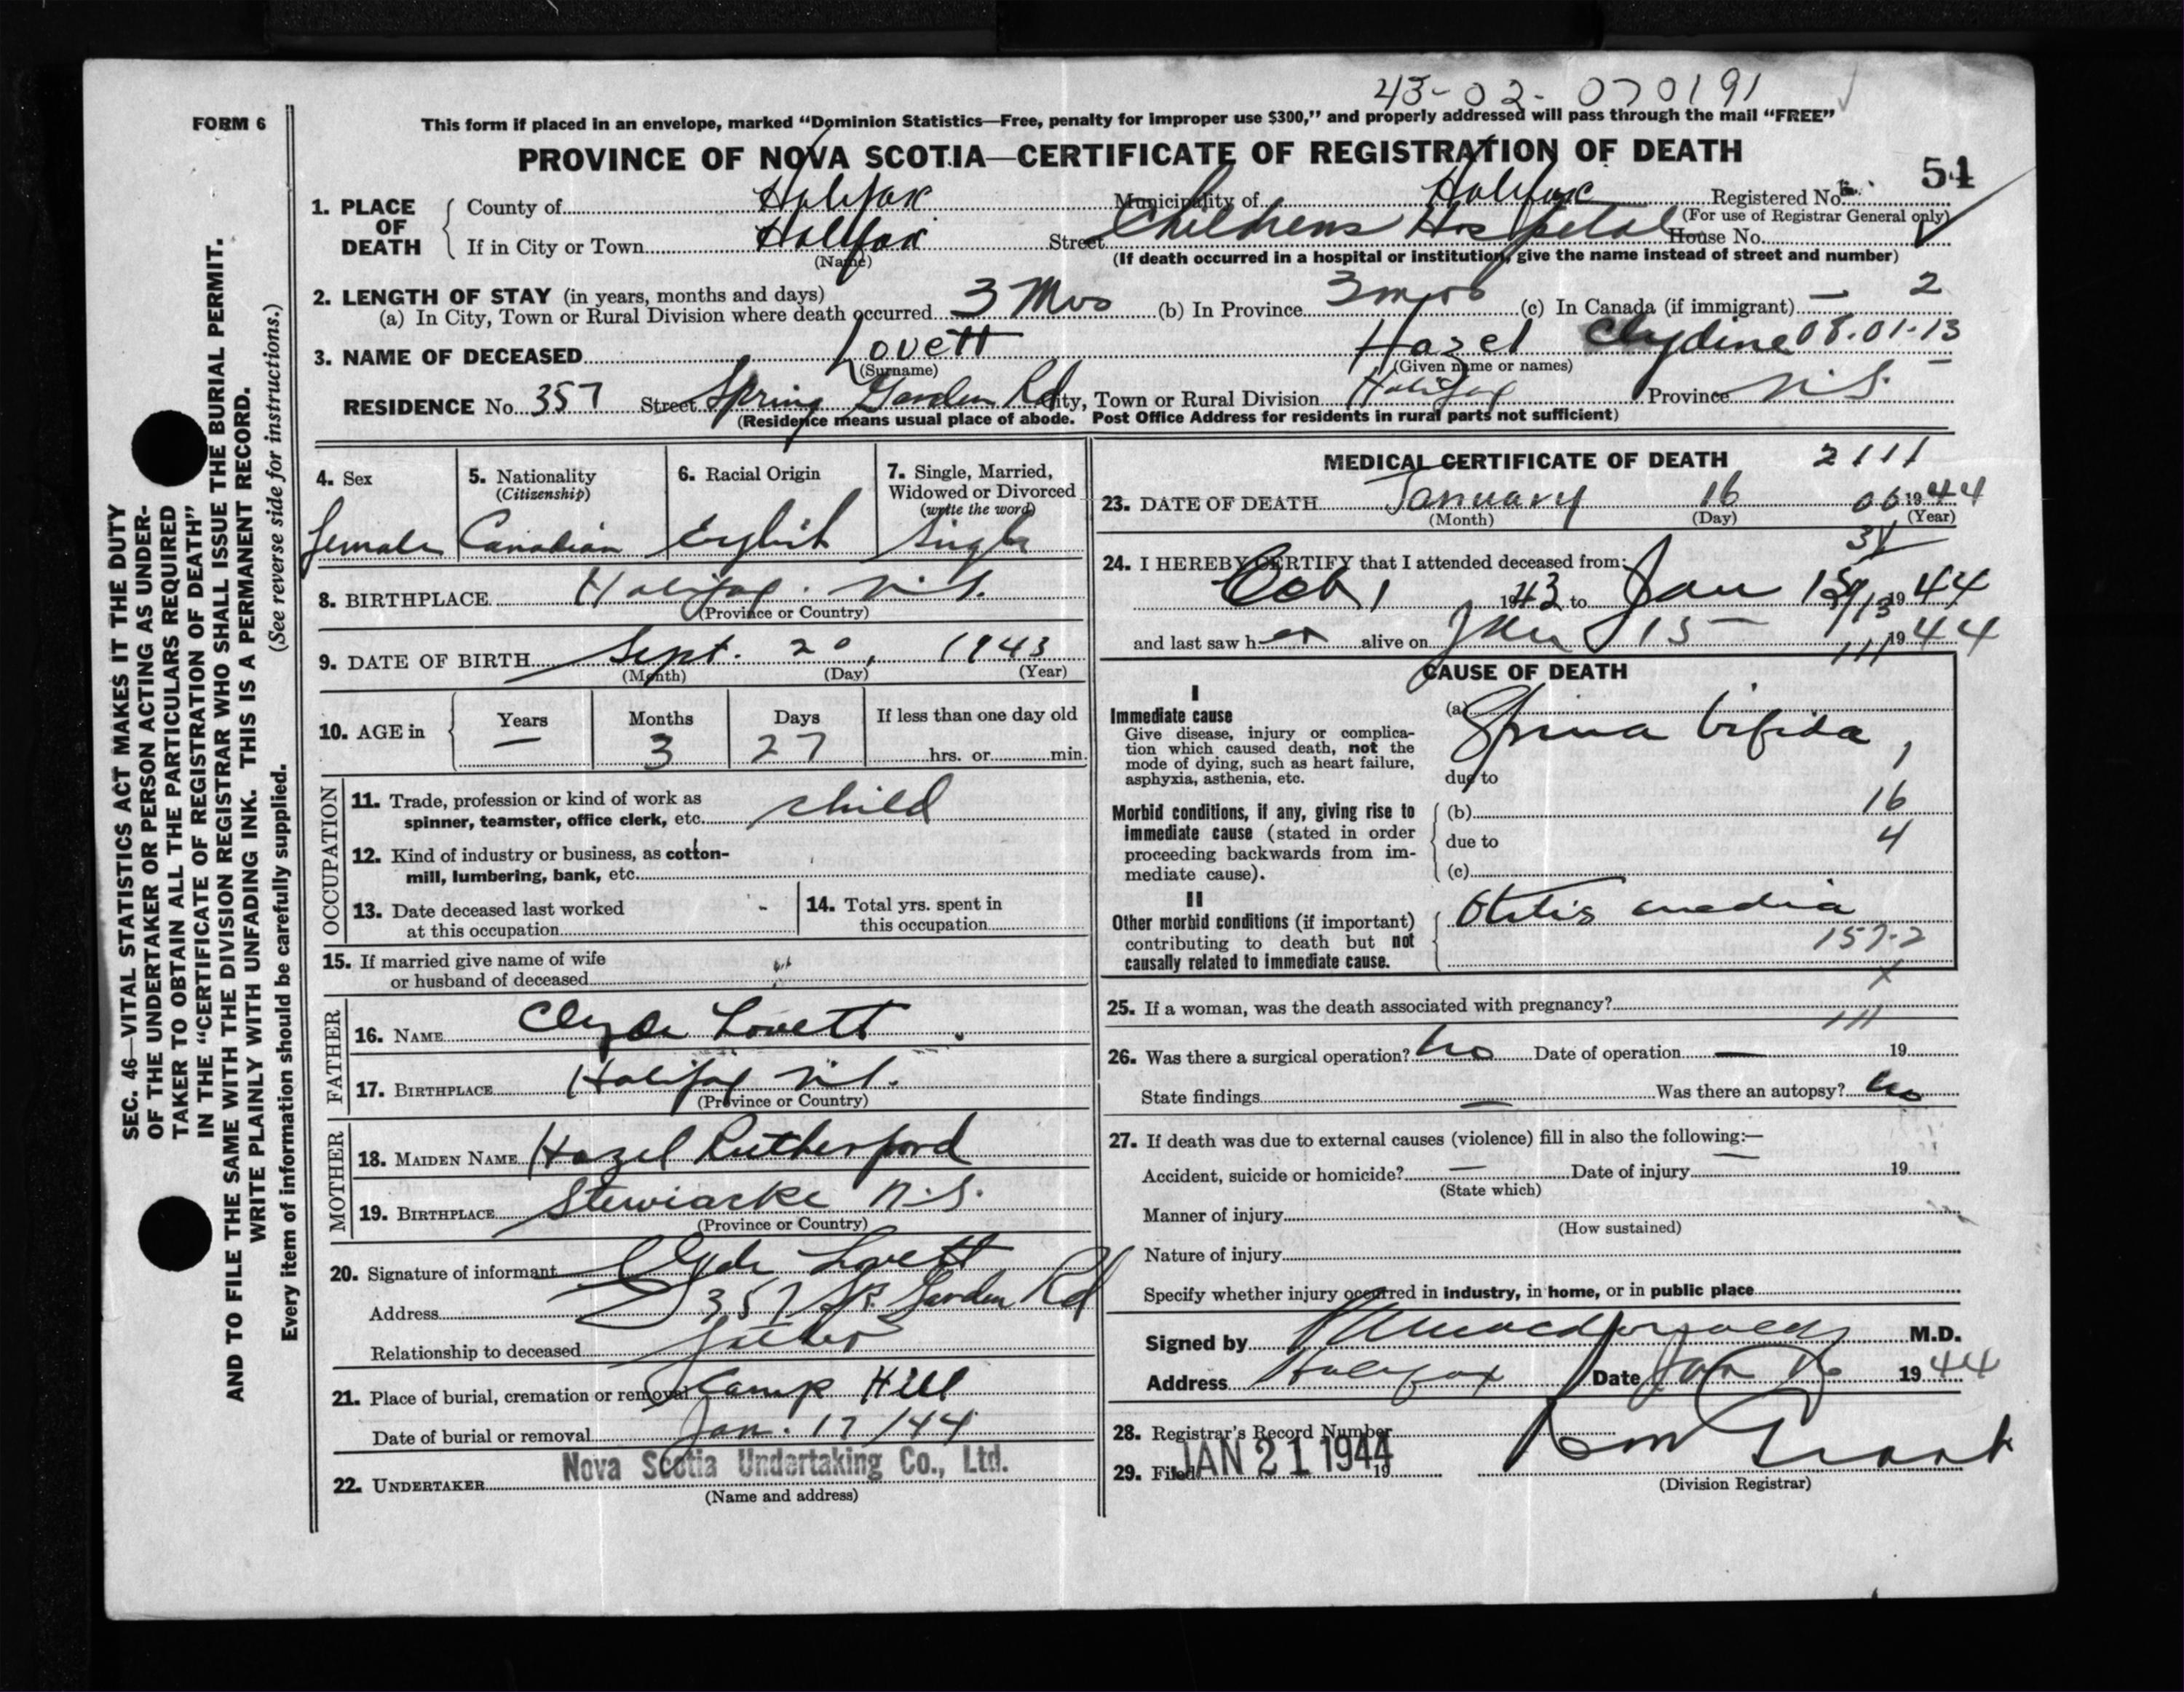 43-02-070191
FORM 6
This form if placed in an envelope, marked “Dominion Statistics—Free, penalty for improper use $300,” and properly addressed will pass through the mail “FREE”
PROVINCE OF NOVA SCOTIA—CERTIFICATE OF REGISTRATION OF DEATH
51
1. PLACE OF DEATH County of Halifax Municipality of Halifax Registered No.
(For use of Registrar General only)
If in City or Town Halifax Street Childrens Hospital House No.
(Name) (If death occurred in a hospital or institution, give the name instead of street and number)
2. LENGTH OF STAY (in years, months and days)
(a) In City, Town or Rural Division where death occurred 3 Mos (b) In Province 3 mos (c) In Canada (if immigrant) — 2
3. NAME OF DECEASED Lovett Hazel Clydine 08.01-13
(Surname) (Given name or names)
RESIDENCE No. 357 Street Spring Garden Rd City, Town or Rural Division Halifax Province N.S.
(Residence means usual place of abode. Post Office Address for residents in rural parts not sufficient)
4. Sex 5. Nationality (Citizenship) 6. Racial Origin 7. Single, Married, Widowed or Divorced (write the word)
Female Canadian English Single
8. BIRTHPLACE Halifax. N.S.
(Province or Country)
9. DATE OF BIRTH Sept. 20, 1943
(Month) (Day) (Year)
10. AGE in Years Months Days If less than one day old
— 3 27 hrs. or min.
OCCUPATION
11. Trade, profession or kind of work as
spinner, teamster, office clerk, etc. child
12. Kind of industry or business, as cotton-
mill, lumbering, bank, etc.
13. Date deceased last worked
at this occupation -
14. Total yrs. spent in
this occupation
15. If married give name of wife
or husband of deceased
FATHER
16. NAME Clyde Lovett
17. BIRTHPLACE Halifax N.S.
(Province or Country)
MOTHER
18. MAIDEN NAME Hazel Rutherford
19. BIRTHPLACE Stewiacke N.S.
(Province or Country)
20. Signature of informant Clyde Lovett
Address 357 Sp. Garden Rd
Relationship to deceased father
21. Place of burial, cremation or removal Camp Hill
Date of burial or removal Jan. 17/44
22. UNDERTAKER Nova Scotia Undertaking Co., Ltd.
(Name and address)
MEDICAL CERTIFICATE OF DEATH 2111
23. DATE OF DEATH January 16 06 1944
(Month) (Day) (Year)
24. I HEREBY CERTIFY that I attended deceased from:
Oct 1 1943 to Jan 15 1944
and last saw her alive on Jan 15 — 1944
111
CAUSE OF DEATH
I
Immediate cause
Give disease, injury or complica-
tion which caused death, not the
mode of dying, such as heart failure,
asphyxia, asthenia, etc.
(a) Spina bifida
1
due to
Morbid conditions, if any, giving rise to
immediate cause (stated in order
proceeding backwards from im-
mediate cause).
(b) 16
due to 4
(c)
II
Other morbid conditions (if important)
contributing to death but not
causally related to immediate cause.
Otitis media
157-2
X
25. If a woman, was the death associated with pregnancy?
111
26. Was there a surgical operation? No Date of operation — 19
State findings — Was there an autopsy? No
27. If death was due to external causes (violence) fill in also the following:—
Accident, suicide or homicide? — Date of injury — 19
(State which)
Manner of injury
(How sustained)
Nature of injury
Specify whether injury occurred in industry, in home, or in public place
Signed by M.D.
Address Halifax Date Jan 16 1944
28. Registrar's Record Number
29. Filed JAN 21 1944 19
(Division Registrar)
SEC. 46—VITAL STATISTICS ACT MAKES IT THE DUTY
OF THE UNDERTAKER OR PERSON ACTING AS UNDER-
TAKER TO OBTAIN ALL THE PARTICULARS REQUIRED
IN THE “CERTIFICATE OF REGISTRATION OF DEATH”
AND TO FILE THE SAME WITH THE DIVISION REGISTRAR WHO SHALL ISSUE THE BURIAL PERMIT.
WRITE PLAINLY WITH UNFADING INK. THIS IS A PERMANENT RECORD.
(See reverse side for instructions.)
Every item of information should be carefully supplied.